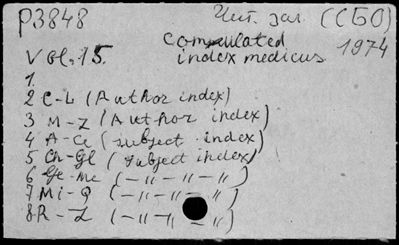 P3848 Чит. зал (СБО)
Vol. 15. Comulated 1974
index medicus
1.
2 C-L (Author index)
3 M-Z (Author index)
4 A-Ce (subject index)
5 Ch-Gl (subject index)
6 Gl-Me (-"-"-"-)
7 Mi-Q (-"-"-"-)
8. R-Z (-"-"-"-)